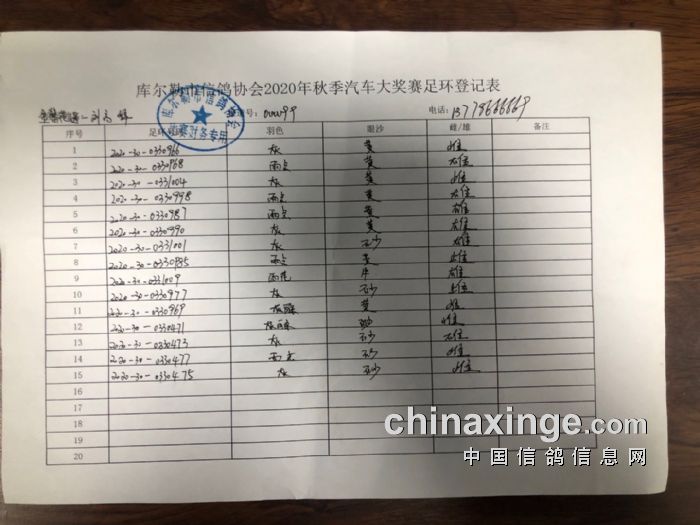 库尔勒市信鸽协会2020年秋季汽车大奖赛足环登记表
库尔勒市信鸽协会
电话: 13778666669
序号 足环号码 羽色 眼沙 雌/雄 备注
1 2020-30-0330966 灰 黄 雌
2 2020-30-0330968 雨点 黄 雄
3 2020-30-0331004 灰 黄 雌
4 2020-30-0330998 雨点 黄 雄
5 2020-30-0330987 雨点 黄 雄
6 2020-30-0330990 灰 黄 雄
7 2020-30-0331001 灰 砂 雄
8 2020-30-0330985 雨点 黄 雌
9 2020-30-0331009 雨花 牛 雄
10 2020-30-0330977 灰 砂 雌
11 2020-30-0330969 黄 雌
12 2020-30-0330471 砂 雌
13 2020-30-0330473 灰 砂 雄
14 2020-30-0330477 雨点 砂 雌
15 2020-30-0330475 灰 砂 雌
16
17
18
19
20
chinaxinge.com
中国信鸽信息网